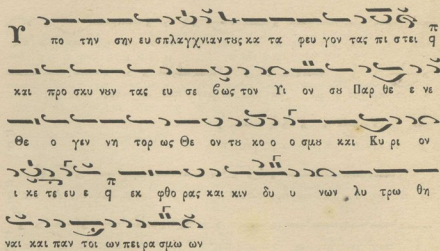 Υ πο την σην ευ σπλαγχνιαν τους κα τα φευ γον τας πι στει q
και προ σκυ νουν τας ευ σε βως τον Υι ον σου Παρ θε ε νε
Θε ο γεν νη τορ ως Θε ον του κο ο ο σμου και Κυ ρι ον
ι κε τε ευ ε q εκ φθο ρας και κιν δυ υ νων λυ τρω θη
ναι και παν τοι ων πει ρα σμω ων